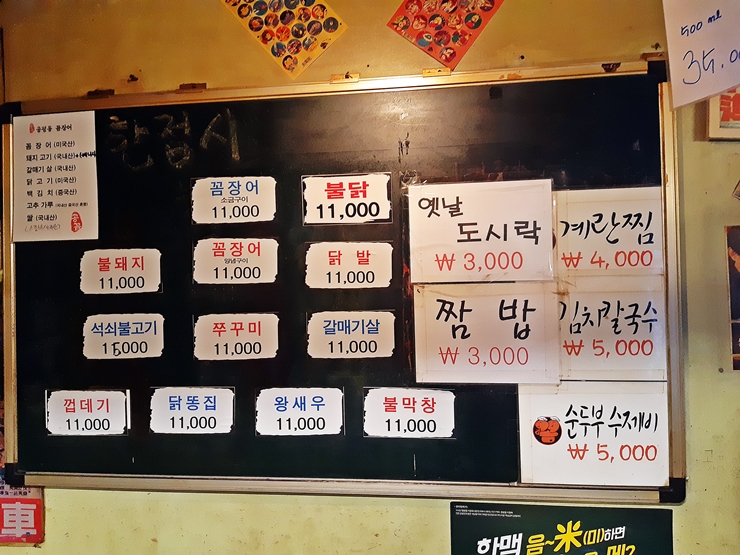 500 ml
35,0
공평동 꼼장어
꼼 장 어 (미국산)
돼지고기 (국내산)
갈매기 살 (국내산)
닭 고 기 (미국산)
백 김 치 (중국산)
고추 가루
쌀 (국내산)
꼼장어
소금구이
11,000
불닭
11,000
불돼지
11,000
꼼장어
양념구이
11,000
닭 발
11,000
석쇠불고기
15,000
쭈꾸미
11,000
갈매기살
11,000
껍데기
11,000
닭똥집
11,000
왕새우
11,000
불막창
11,000
옛날
도시락
₩ 3,000
계란찜
₩ 4,000
짬 밥
₩ 3,000
김치칼국수
₩ 5,000
순두부수제비
₩ 5,000
車
한맥 음~米(미)하면